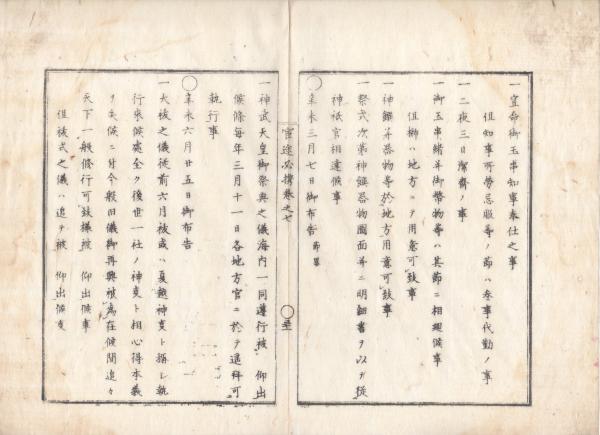 一宣命御玉串知事奉仕之事
但知事所労忌服等ノ節ハ参事代勤ノ事
一二夜三日潔斎ノ事
一御玉串緒并御幣物等ハ其節ニ相廻候事
但榊ハ地方ニテ用意可致事
一神饌并器物等於地方用意可致事
一祭式次第神饌器物図面等ニ明細書ヲ以テ従
神祇官相達候事
〇辛未三月七日御布告 節略
官途必携巻之七
一神武天皇御祭典之儀海内一同遵行被 仰出
候條毎年三月十一日各地方官ニ於テ遥拝可
執行事
〇辛未六月廿五日御布告
一大祓之儀従前六月祓或ハ夏越神事ト称シ執
行来候処全ク後世一社ノ神事ト相心得本義
ヲ失候ニ付今般旧儀御再興被為在候間追々
天下一般修行可致様被 仰出候事
但祓式之儀ハ追テ被 仰出候事